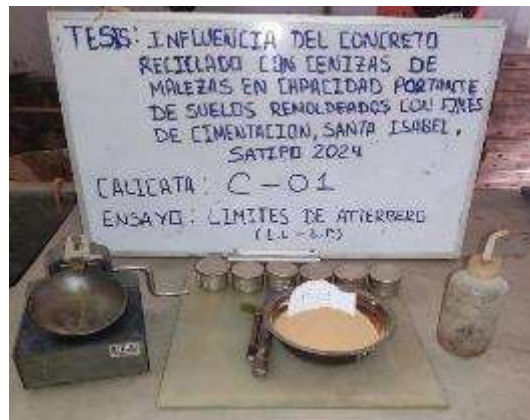 TESIS: INFLUENCIA DEL CONCRETO
RECICLADO CON CENIZAS DE
MALEZAS EN CAPACIDAD PORTANTE
DE SUELOS REMOLDEADOS CON FINES
DE CIMENTACION, SANTA ISABEL,
SATIPO 2024
CALICATA: C-01
ENSAYO: LIMITES DE ATTERBERG
(L.L - L.P)